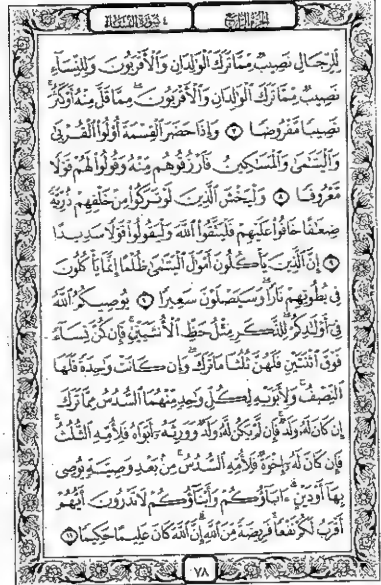 الجزء الرابع
٤ سورة النساء
لِّلرِّجَالِ نَصِيبٌ مِّمَّا تَرَكَ الْوَالِدَانِ وَالْأَقْرَبُونَ وَلِلنِّسَاءِ
نَصِيبٌ مِّمَّا تَرَكَ الْوَالِدَانِ وَالْأَقْرَبُونَ مِمَّا قَلَّ مِنْهُ أَوْ كَثُرَ
نَصِيبًا مَّفْرُوضًا ٧ وَإِذَا حَضَرَ الْقِسْمَةَ أُولُوا الْقُرْبَىٰ
وَالْيَتَٰمَىٰ وَالْمَسَٰكِينُ فَارْزُقُوهُم مِّنْهُ وَقُولُوا لَهُمْ قَوْلًا
مَّعْرُوفًا ٨ وَلْيَخْشَ الَّذِينَ لَوْ تَرَكُوا مِنْ خَلْفِهِمْ ذُرِّيَّةً
ضِعَٰفًا خَافُوا عَلَيْهِمْ فَلْيَتَّقُوا اللَّهَ وَلْيَقُولُوا قَوْلًا سَدِيدًا
٩ إِنَّ الَّذِينَ يَأْكُلُونَ أَمْوَٰلَ الْيَتَٰمَىٰ ظُلْمًا إِنَّمَا يَأْكُلُونَ
فِي بُطُونِهِمْ نَارًا وَسَيَصْلَوْنَ سَعِيرًا ١٠ يُوصِيكُمُ اللَّهُ
فِي أَوْلَٰدِكُمْ لِلذَّكَرِ مِثْلُ حَظِّ الْأُنثَيَيْنِ فَإِن كُنَّ نِسَاءً
فَوْقَ اثْنَتَيْنِ فَلَهُنَّ ثُلُثَا مَا تَرَكَ وَإِن كَانَتْ وَٰحِدَةً فَلَهَا
النِّصْفُ وَلِأَبَوَيْهِ لِكُلِّ وَٰحِدٍ مِّنْهُمَا السُّدُسُ مِمَّا تَرَكَ
إِن كَانَ لَهُ وَلَدٌ فَإِن لَّمْ يَكُن لَّهُ وَلَدٌ وَوَرِثَهُ أَبَوَاهُ فَلِأُمِّهِ الثُّلُثُ
فَإِن كَانَ لَهُ إِخْوَةٌ فَلِأُمِّهِ السُّدُسُ مِن بَعْدِ وَصِيَّةٍ يُوصِي
بِهَا أَوْ دَيْنٍ ءَابَاؤُكُمْ وَأَبْنَاؤُكُمْ لَا تَدْرُونَ أَيُّهُمْ
أَقْرَبُ لَكُمْ نَفْعًا فَرِيضَةً مِّنَ اللَّهِ إِنَّ اللَّهَ كَانَ عَلِيمًا حَكِيمًا ١١
٧٨